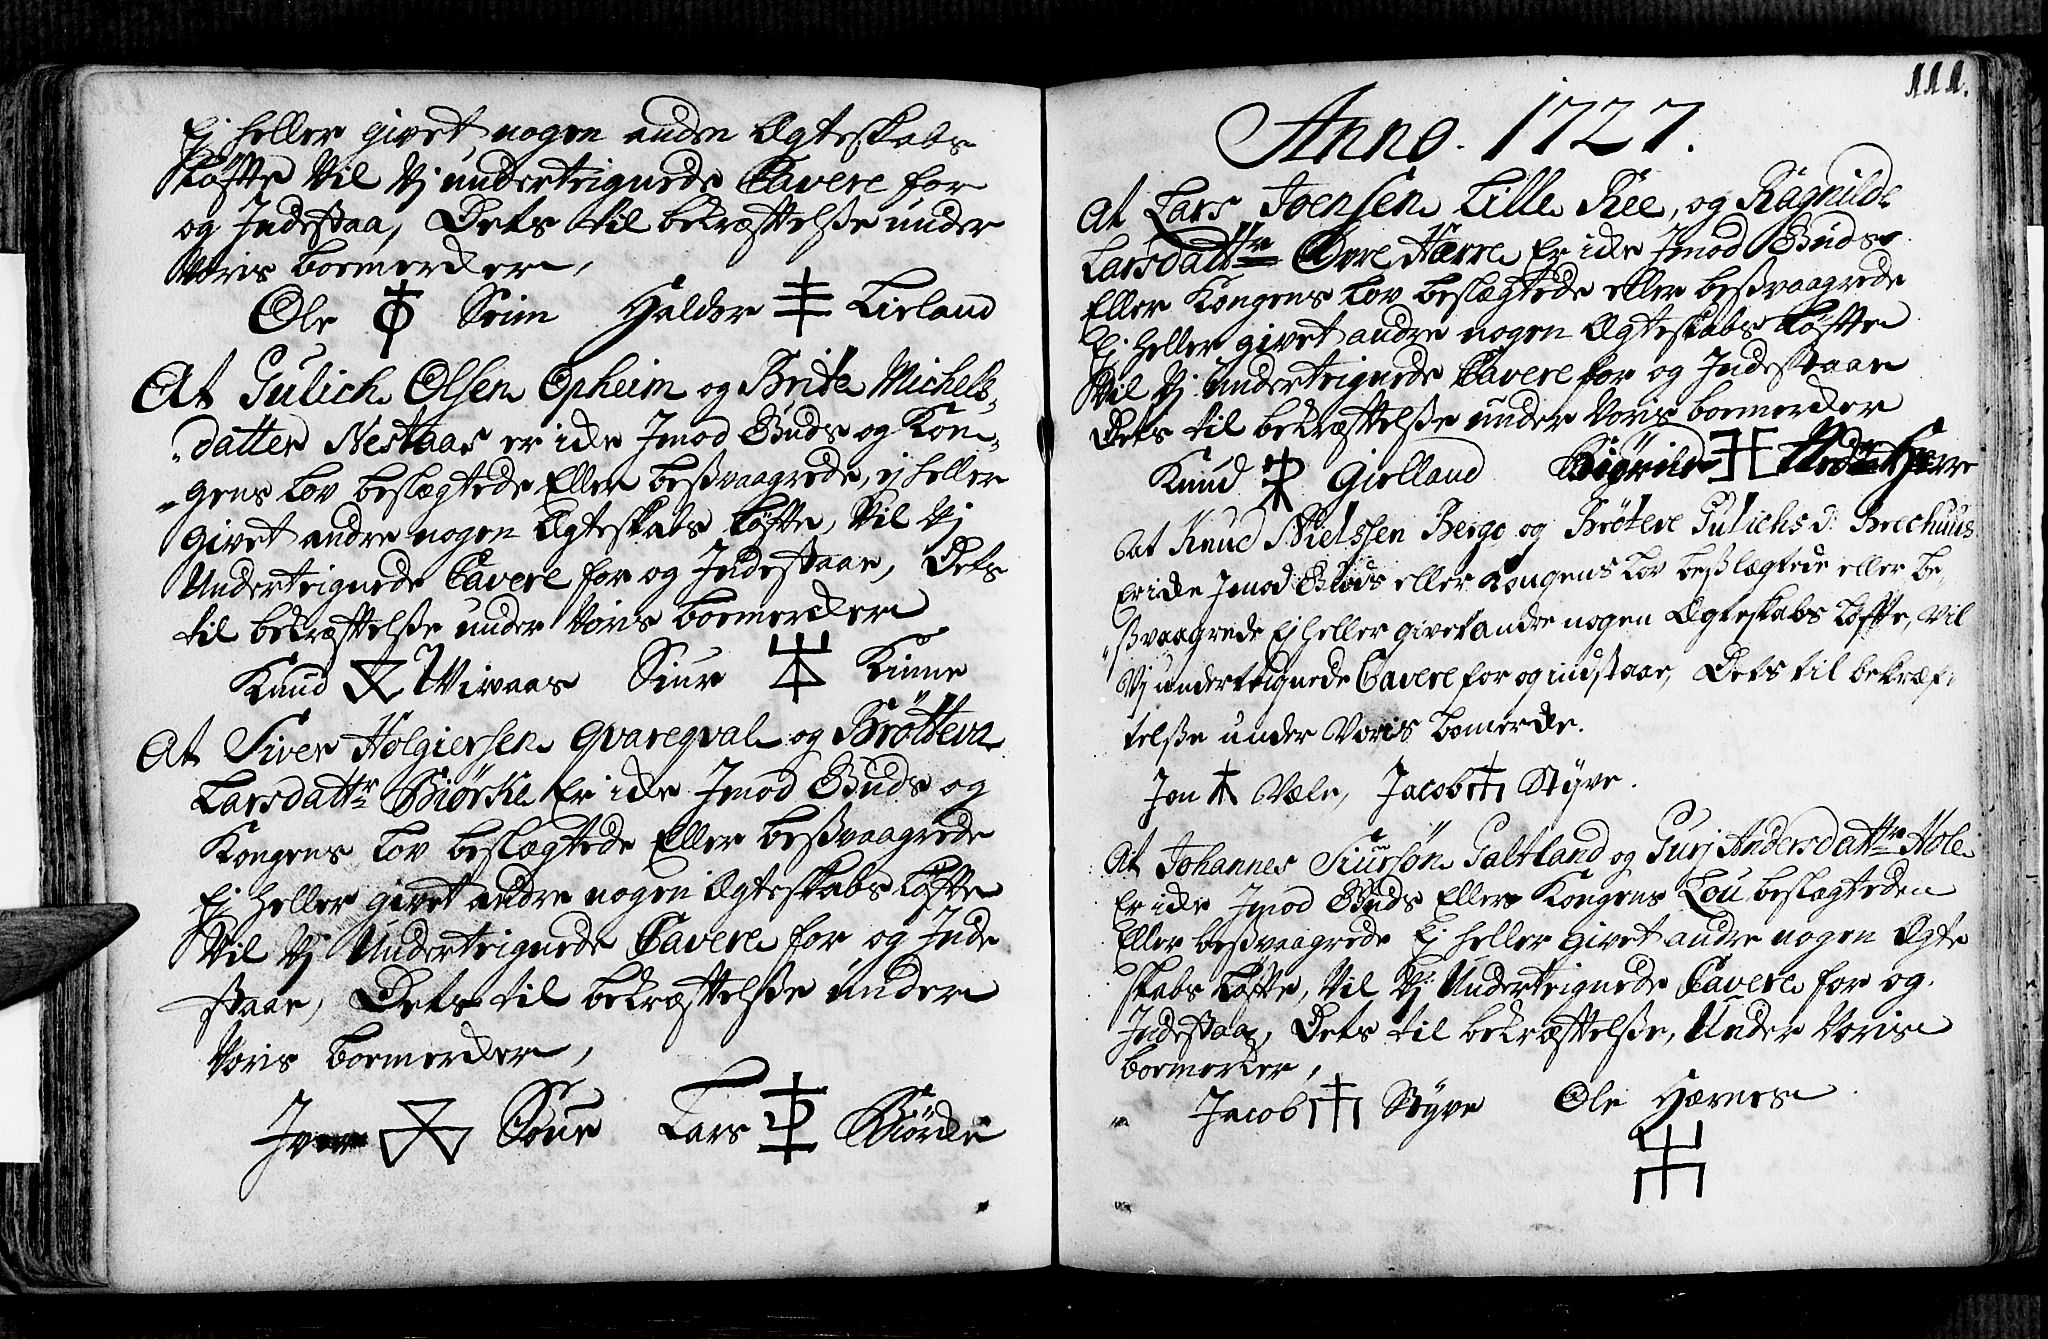 Ej heller givet nogen anden Ægteskabs
Løfte Vil Vj underteignede Cavere for
og Indestaa, Dets til bekræftelsße under
Voris boemercker,
Ole Seim Haldor Lieland
At Gulich Olsen Opheim og Brite Michels-
datter Nestaas er icke Jmod Guds og Kon-
gens Lov beslægtede Eller beßvaagrede, ej heller
givet andre nogen Ægteskabs Løfte, Vil Vj
Underteignede Cavere for og Indestaae, Dets
til bekræftelsße under Voris boemercker
Knud Wiwaas Siur Kinne
At Siver Holgiersen Qvareqval og Brötteva
Larsdattr Biørke Er icke Jmod Guds og
Kongens Lov beslægtede Eller beßvaagrede
Ej heller givet andre nogen Ægteskabs Løfte
Vil Vj Underteignede Cavere for og Inde
staae, Dets til bekræftelsße under
Voris boemercker,
Iver Soue Lars Biörcke
111.
Anno. 1727.
At Lars Joensen Lille Rëe, og Ragnilde
Larsdattr Øvre Hærre Er icke Jmod Guds
Eller Kongens Lov beslægtede eller beßvaagrede
Ej heller givet andre nogen Ægteskabs Løfte
Vil Vj Underteignede Cavere for og Indestaae
Dets til bekræftelsße under Voris boemercker
Knud Gielland Herre
At Knud Nielssen Berge og Brötere Gulichs d: Brechuus
Er icke Jmod Guds eller Kongens Lov beßlægtede eller be-
ßvaagrede Ej heller givet andre nogen Ægteskabs Løffte, Vil
Vj underteignede Cavere for og indstaae, Dets til bekræf-
telsße under Voris bomercke.
Jon Væle, Jacob Styve.
At Johannes Siursøn Saltland og Gurj Andersdattr Hole
Er icke Jmod Guds Eller Kongens Lou beslægteden
Eller beßvaagrede Ej heller givet andre nogen Ægte
skabs Løfte, Vil Vj Underteignede Cavere for og
Indestaa, Dets til bekræftelsße, Under Voris
boemercker,
Jacob Styve Ole Hærnes